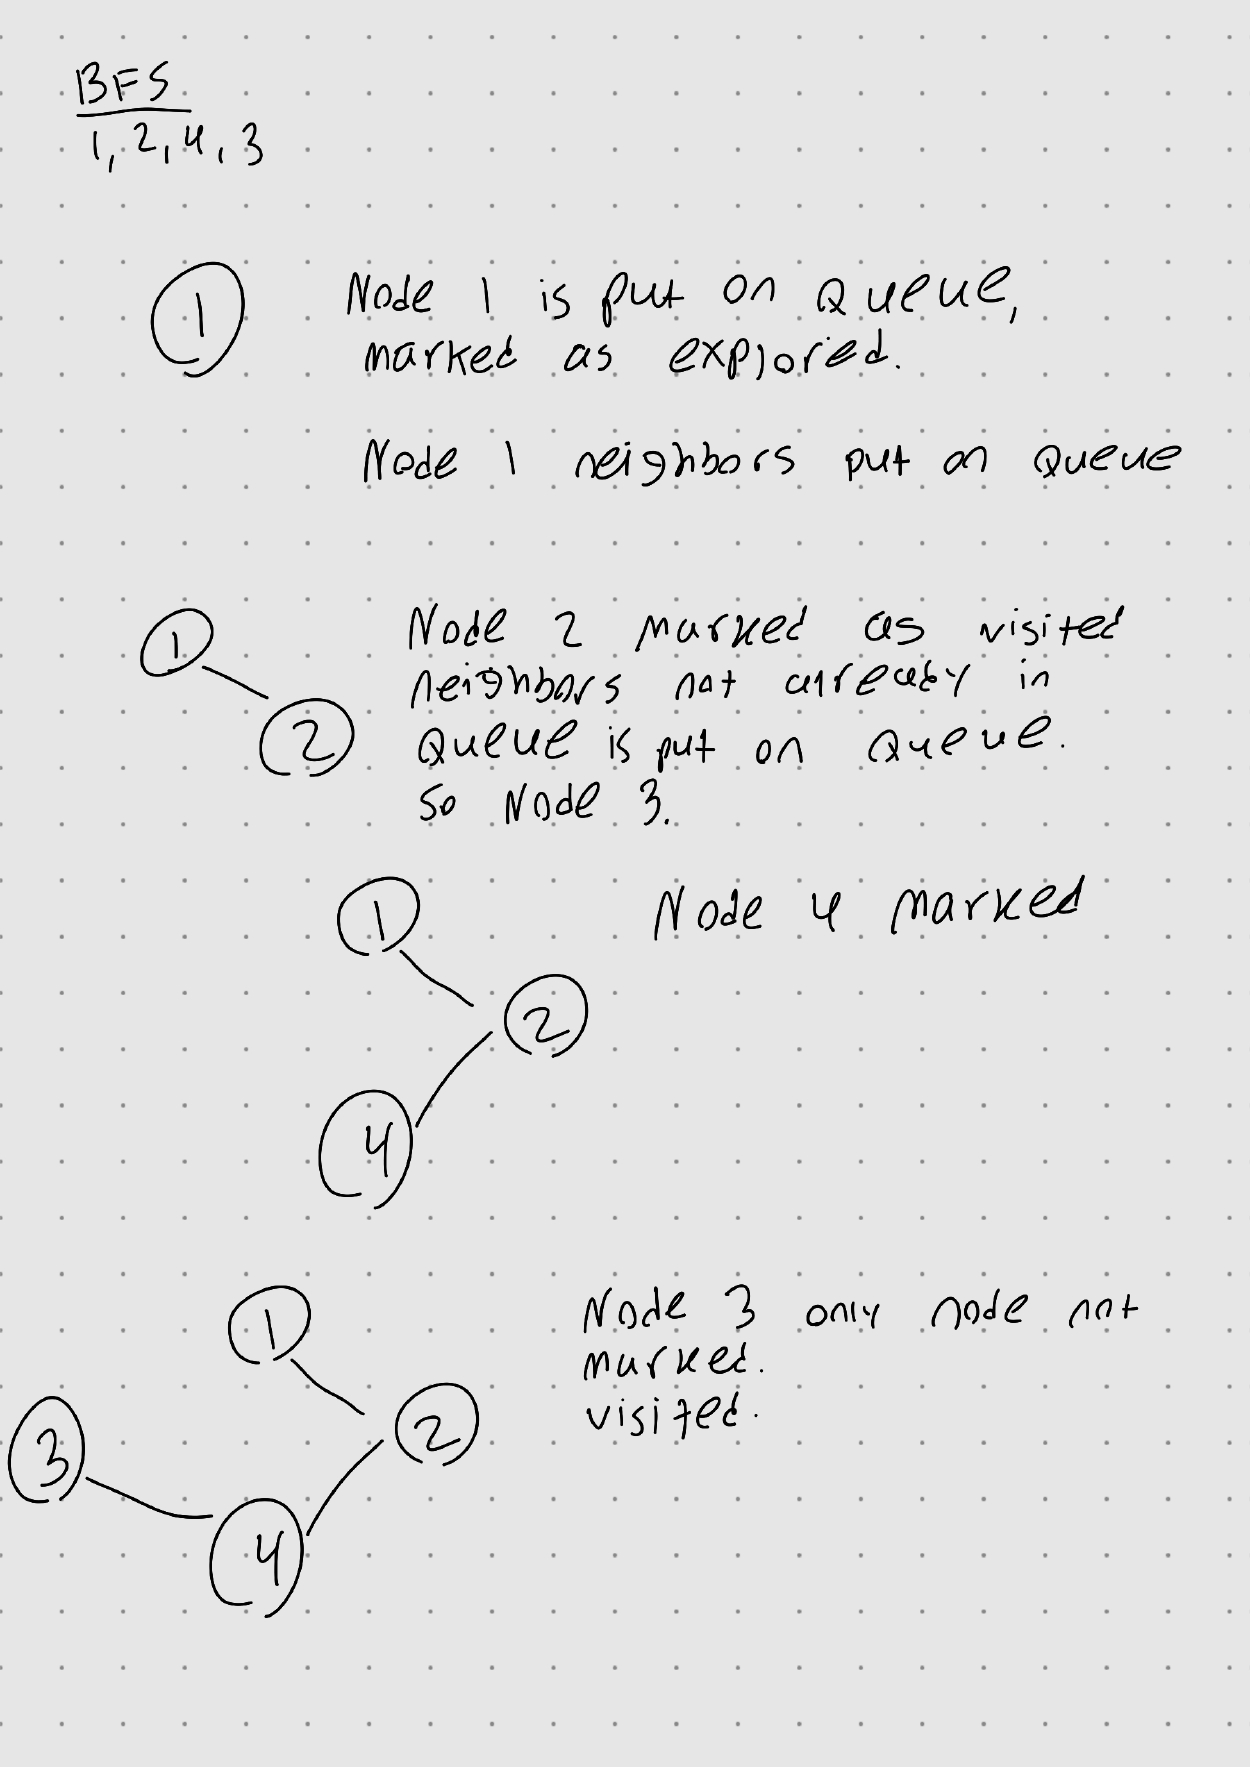 BFS
1, 2, 4, 3
1
Node 1 is put on Queue,
marked as explored.
Node 1 neighbors put on Queue
1
2
Node 2 marked as visited
neighbors not already in
Queue is put on Queue.
So Node 3.
1
2
4
Node 4 marked
1
2
3
4
Node 3 only node not
marked.
visited.